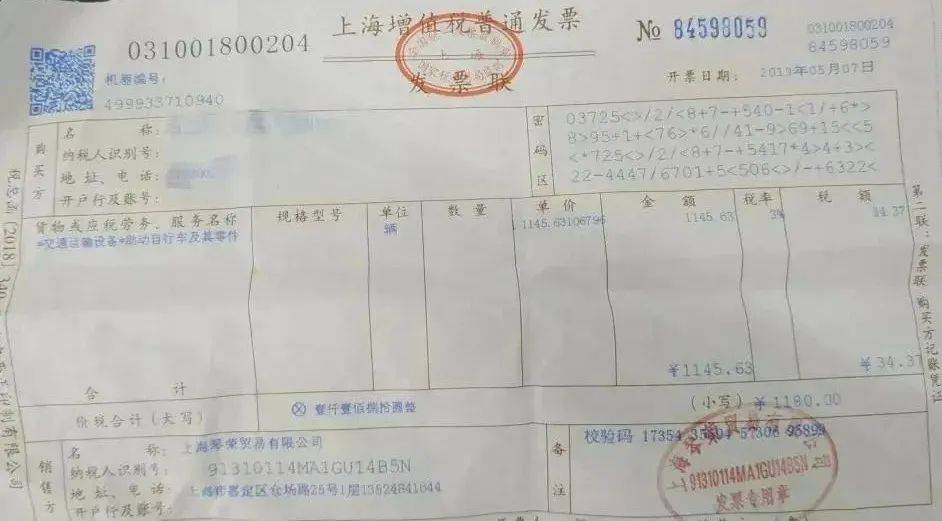 031001800204
上海增值税普通发票
发票联
№ 84598059
031001800204
84598059
机器编号:
499933710940
开票日期: 2019年05月07日
购买方
名 称:
纳税人识别号:
地 址、电 话:
开户行及账号:
密码区
03725<>/2/<8+7-+540-1<1/+6*>
8>95+1+<76>*6//41-9>69+15<<5
<*725<>/2/<8+7-+5417*4>4+3><
22-4447/6701+5<506<>/-++6322<
货物或应税劳务、服务名称 规格型号 单位 数量 单价 金额 税率 税额
*交通运输设备*助动自行车及其零件 辆 1145.63106796 1145.63 3% 34.37
合 计 ¥1145.63 ¥34.37
价税合计(大写) ⊗ 壹仟壹佰捌拾圆整 (小写) ¥1180.00
销售方
名 称: 上海琴荣贸易有限公司
纳税人识别号: 91310114MA1GU14B5N
地 址、电 话: 上海市嘉定区众场路25号1层13524841644
开户行及账号:
备注
校验码 17354 57306 95899
91310114MA1GU14B5N
发票专用章
第二联:发票联 购买方记账凭证
税总函[2018]
有限公司